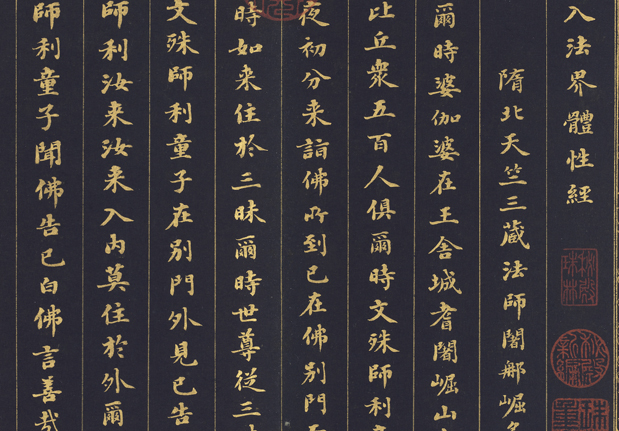 入法界體性經
隋北天竺三藏法師闍那崛多
爾時婆伽婆在王舍城耆闍崛山
比丘衆五百人俱爾時文殊師利
夜初分来詣佛所到已在佛別門
時如来住於三昧爾時世尊從三
文殊師利童子在別門外見已告
師利汝来汝来入内莫住於外爾
師利童子聞佛告已白佛言善哉